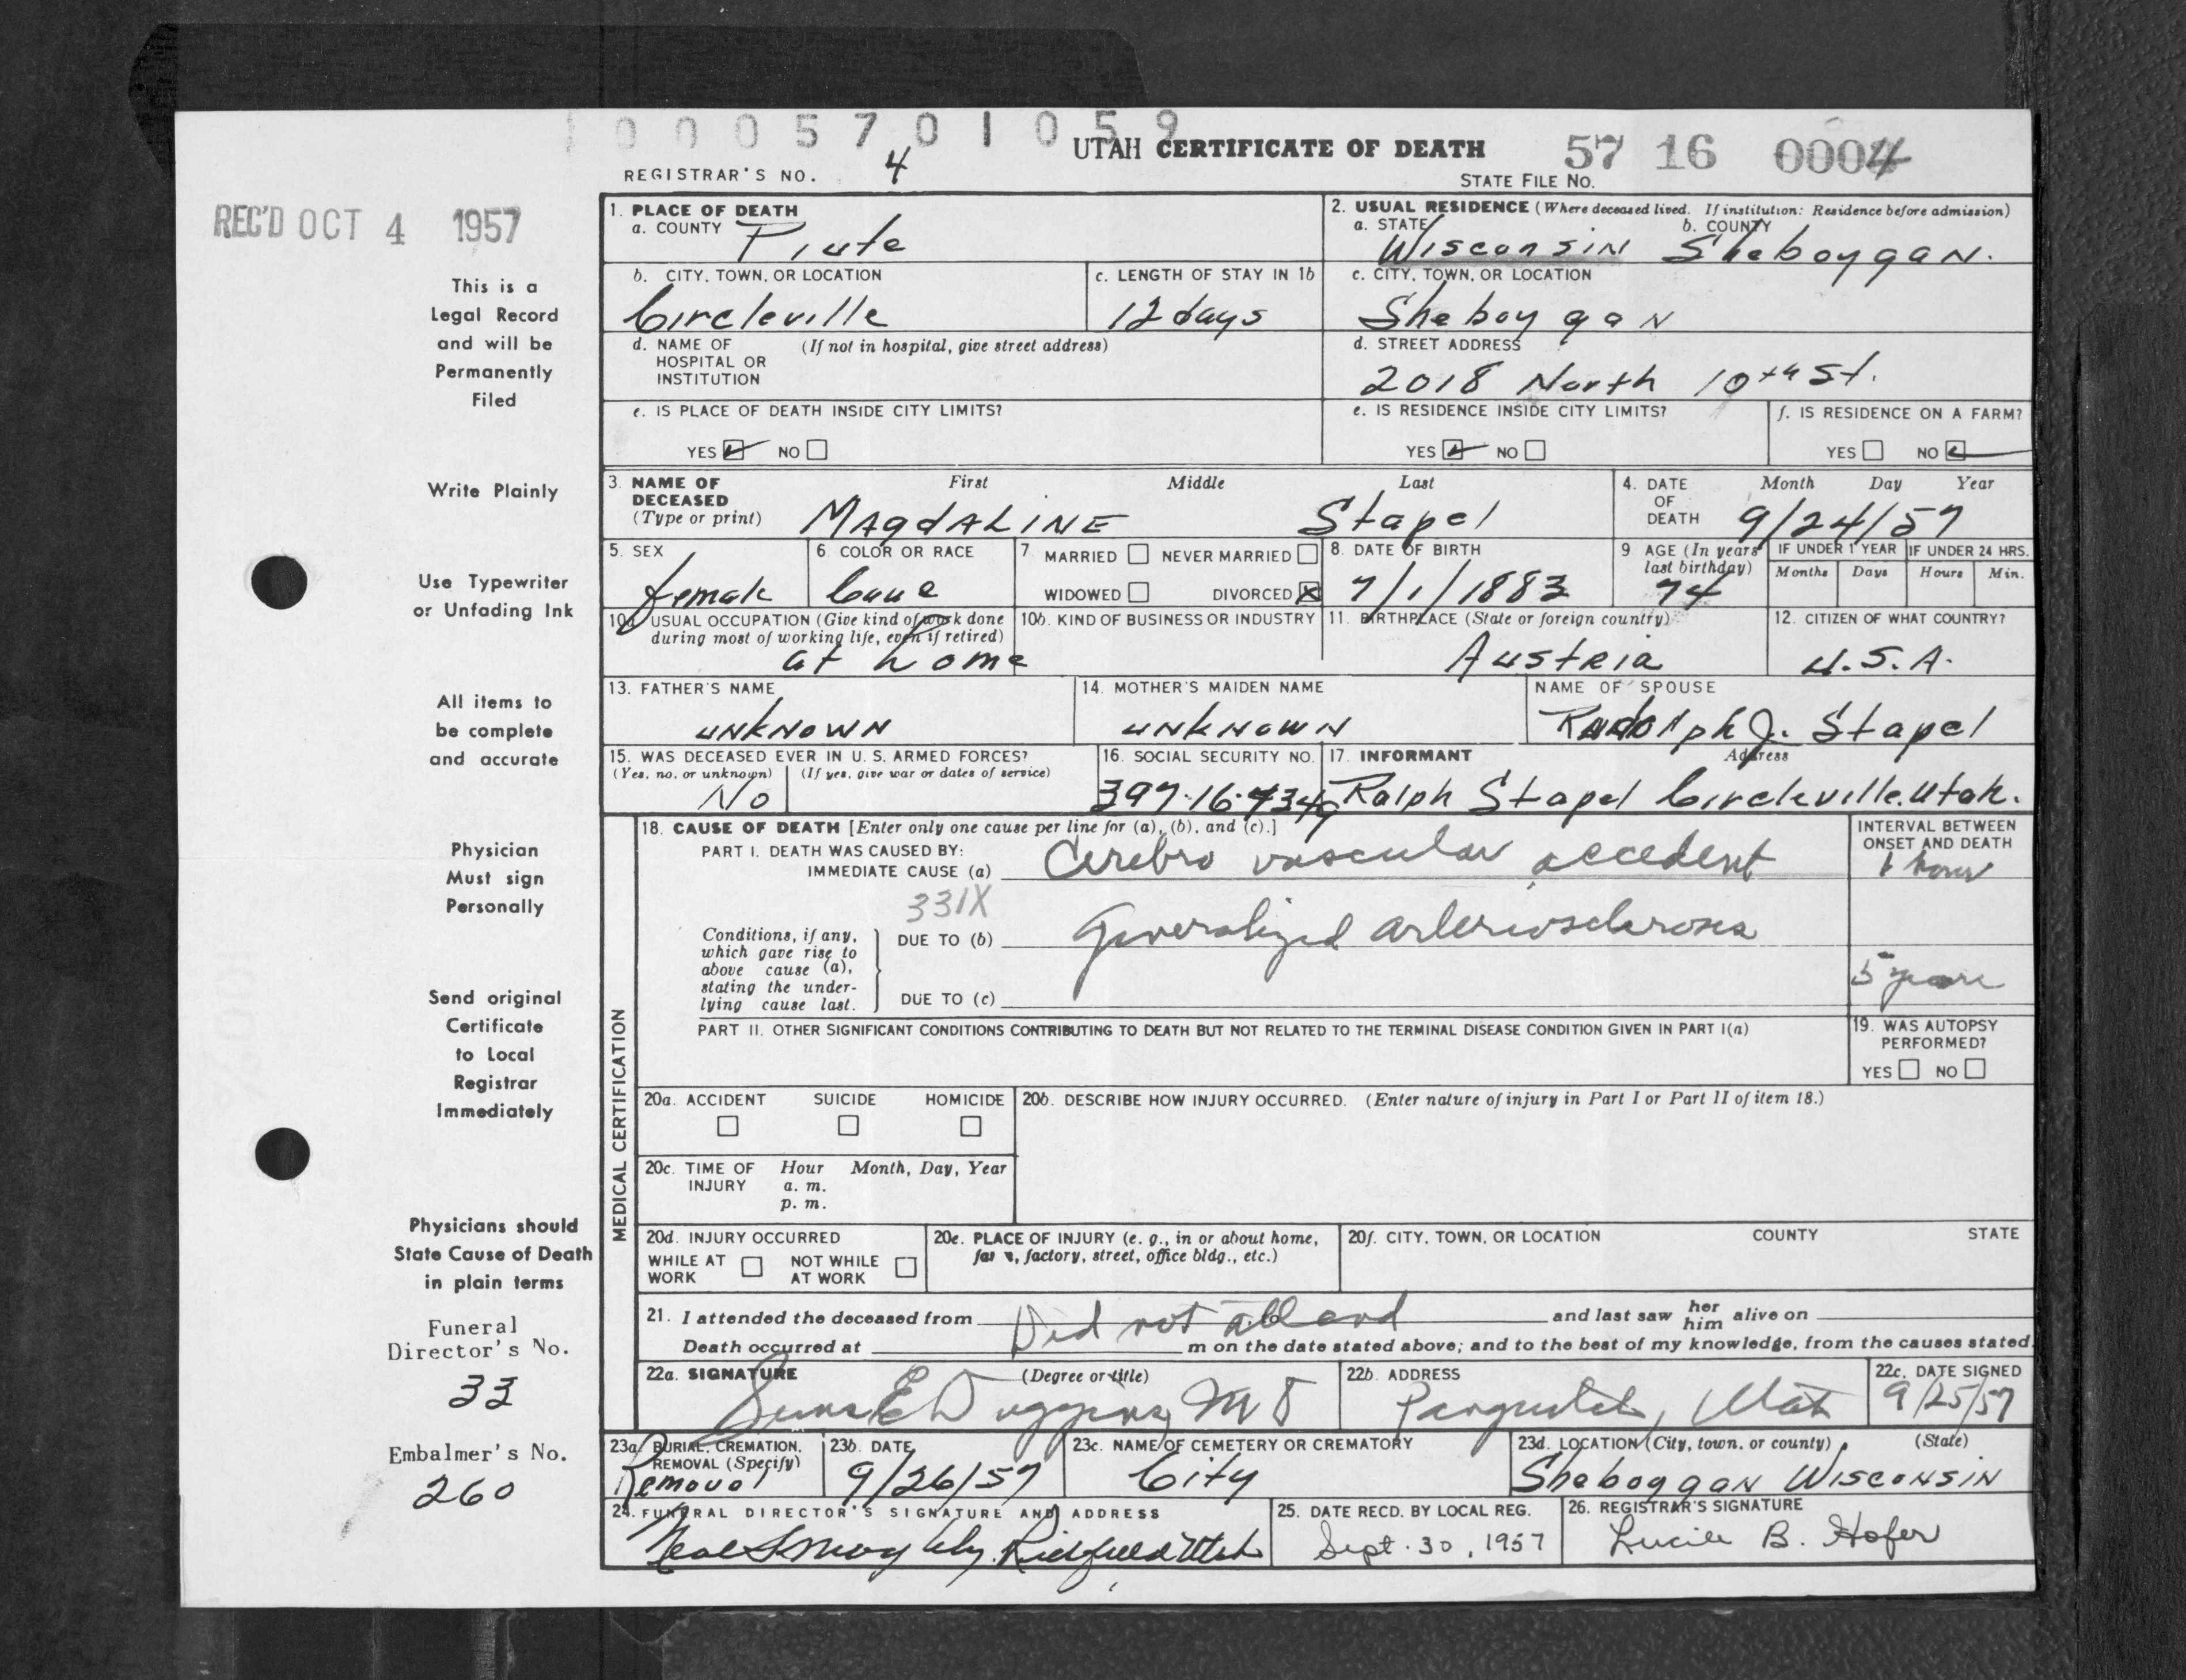 0 0 0 5 7 0 1 0 5 9
UTAH CERTIFICATE OF DEATH 57 16 0004
REGISTRAR'S NO. 4 STATE FILE No.
REC'D OCT 4 1957
This is a
Legal Record
and will be
Permanently
Filed
Write Plainly
Use Typewriter
or Unfading Ink
All items to
be complete
and accurate
Physician
Must sign
Personally
Send original
Certificate
to Local
Registrar
Immediately
Physicians should
State Cause of Death
in plain terms
Funeral
Director's No.
33
Embalmer's No.
260
1. PLACE OF DEATH
a. COUNTY Piute
2. USUAL RESIDENCE (Where deceased lived. If institution: Residence before admission)
a. STATE Wisconsin b. COUNTY Sheboygan.
b. CITY, TOWN, OR LOCATION Circleville
c. LENGTH OF STAY IN 1b 12 days
c. CITY, TOWN, OR LOCATION Sheboygan
d. NAME OF HOSPITAL OR INSTITUTION (If not in hospital, give street address)
d. STREET ADDRESS 2018 North 10th St.
e. IS PLACE OF DEATH INSIDE CITY LIMITS?
YES NO
e. IS RESIDENCE INSIDE CITY LIMITS?
YES NO
f. IS RESIDENCE ON A FARM?
YES NO
3. NAME OF DECEASED (Type or print) First Middle Last
MAgdALINE Stapel
4. DATE OF DEATH Month Day Year
9/24/57
5. SEX female
6. COLOR OR RACE
7. MARRIED NEVER MARRIED
WIDOWED DIVORCED X
8. DATE OF BIRTH 7/1/1883
9 AGE (In years last birthday) 74
IF UNDER 1 YEAR Months Days
IF UNDER 24 HRS. Hours Min.
10a USUAL OCCUPATION (Give kind of work done during most of working life, even if retired)
at home
10b. KIND OF BUSINESS OR INDUSTRY
11. BIRTHPLACE (State or foreign country) Austria
12. CITIZEN OF WHAT COUNTRY? U.S.A.
13. FATHER'S NAME unknown
14. MOTHER'S MAIDEN NAME unknown
NAME OF SPOUSE Rudolph J. Stapel
15. WAS DECEASED EVER IN U. S. ARMED FORCES?
(Yes, no, or unknown) (If yes, give war or dates of service)
No
16. SOCIAL SECURITY NO. 397-16-7349
17. INFORMANT Address
Ralph Stapel Circleville, Utah.
MEDICAL CERTIFICATION
18. CAUSE OF DEATH [Enter only one cause per line for (a), (b), and (c).]
PART I. DEATH WAS CAUSED BY:
IMMEDIATE CAUSE (a) Cerebro vascular accedent
331X
Conditions, if any, which gave rise to above cause (a), stating the underlying cause last.
DUE TO (b) Generalized arteriosclerosis
DUE TO (c)
INTERVAL BETWEEN ONSET AND DEATH
1 hour
5 years
PART II. OTHER SIGNIFICANT CONDITIONS CONTRIBUTING TO DEATH BUT NOT RELATED TO THE TERMINAL DISEASE CONDITION GIVEN IN PART I(a)
19. WAS AUTOPSY PERFORMED?
YES NO
20a. ACCIDENT SUICIDE HOMICIDE
20b. DESCRIBE HOW INJURY OCCURRED. (Enter nature of injury in Part I or Part II of item 18.)
20c. TIME OF INJURY Hour Month, Day, Year
a. m.
p. m.
20d. INJURY OCCURRED
WHILE AT WORK NOT WHILE AT WORK
20e. PLACE OF INJURY (e. g., in or about home, farm, factory, street, office bldg., etc.)
20f. CITY, TOWN, OR LOCATION COUNTY STATE
21. I attended the deceased from Did not attend and last saw her him alive on
Death occurred at m on the date stated above; and to the best of my knowledge, from the causes stated.
22a. SIGNATURE (Degree or title)
Sims E Duggins MD
22b. ADDRESS
Panguitch, Utah
22c. DATE SIGNED
9/25/57
23a BURIAL, CREMATION, REMOVAL (Specify)
Removal
23b. DATE
9/26/57
23c. NAME OF CEMETERY OR CREMATORY
City
23d. LOCATION (City, town, or county) (State)
Sheboygan Wisconsin
24. FUNERAL DIRECTOR'S SIGNATURE AND ADDRESS
Richfield Utah
25. DATE RECD. BY LOCAL REG.
Sept. 30, 1957
26. REGISTRAR'S SIGNATURE
Lucile B. Hofer